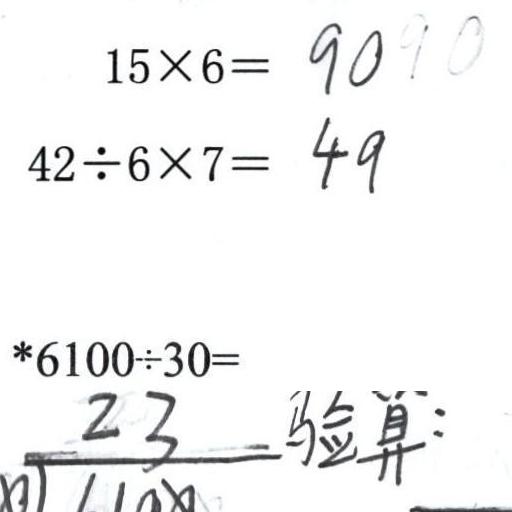 15×6= 90 90
42÷6×7= 49
*6100÷30=
23 验算: